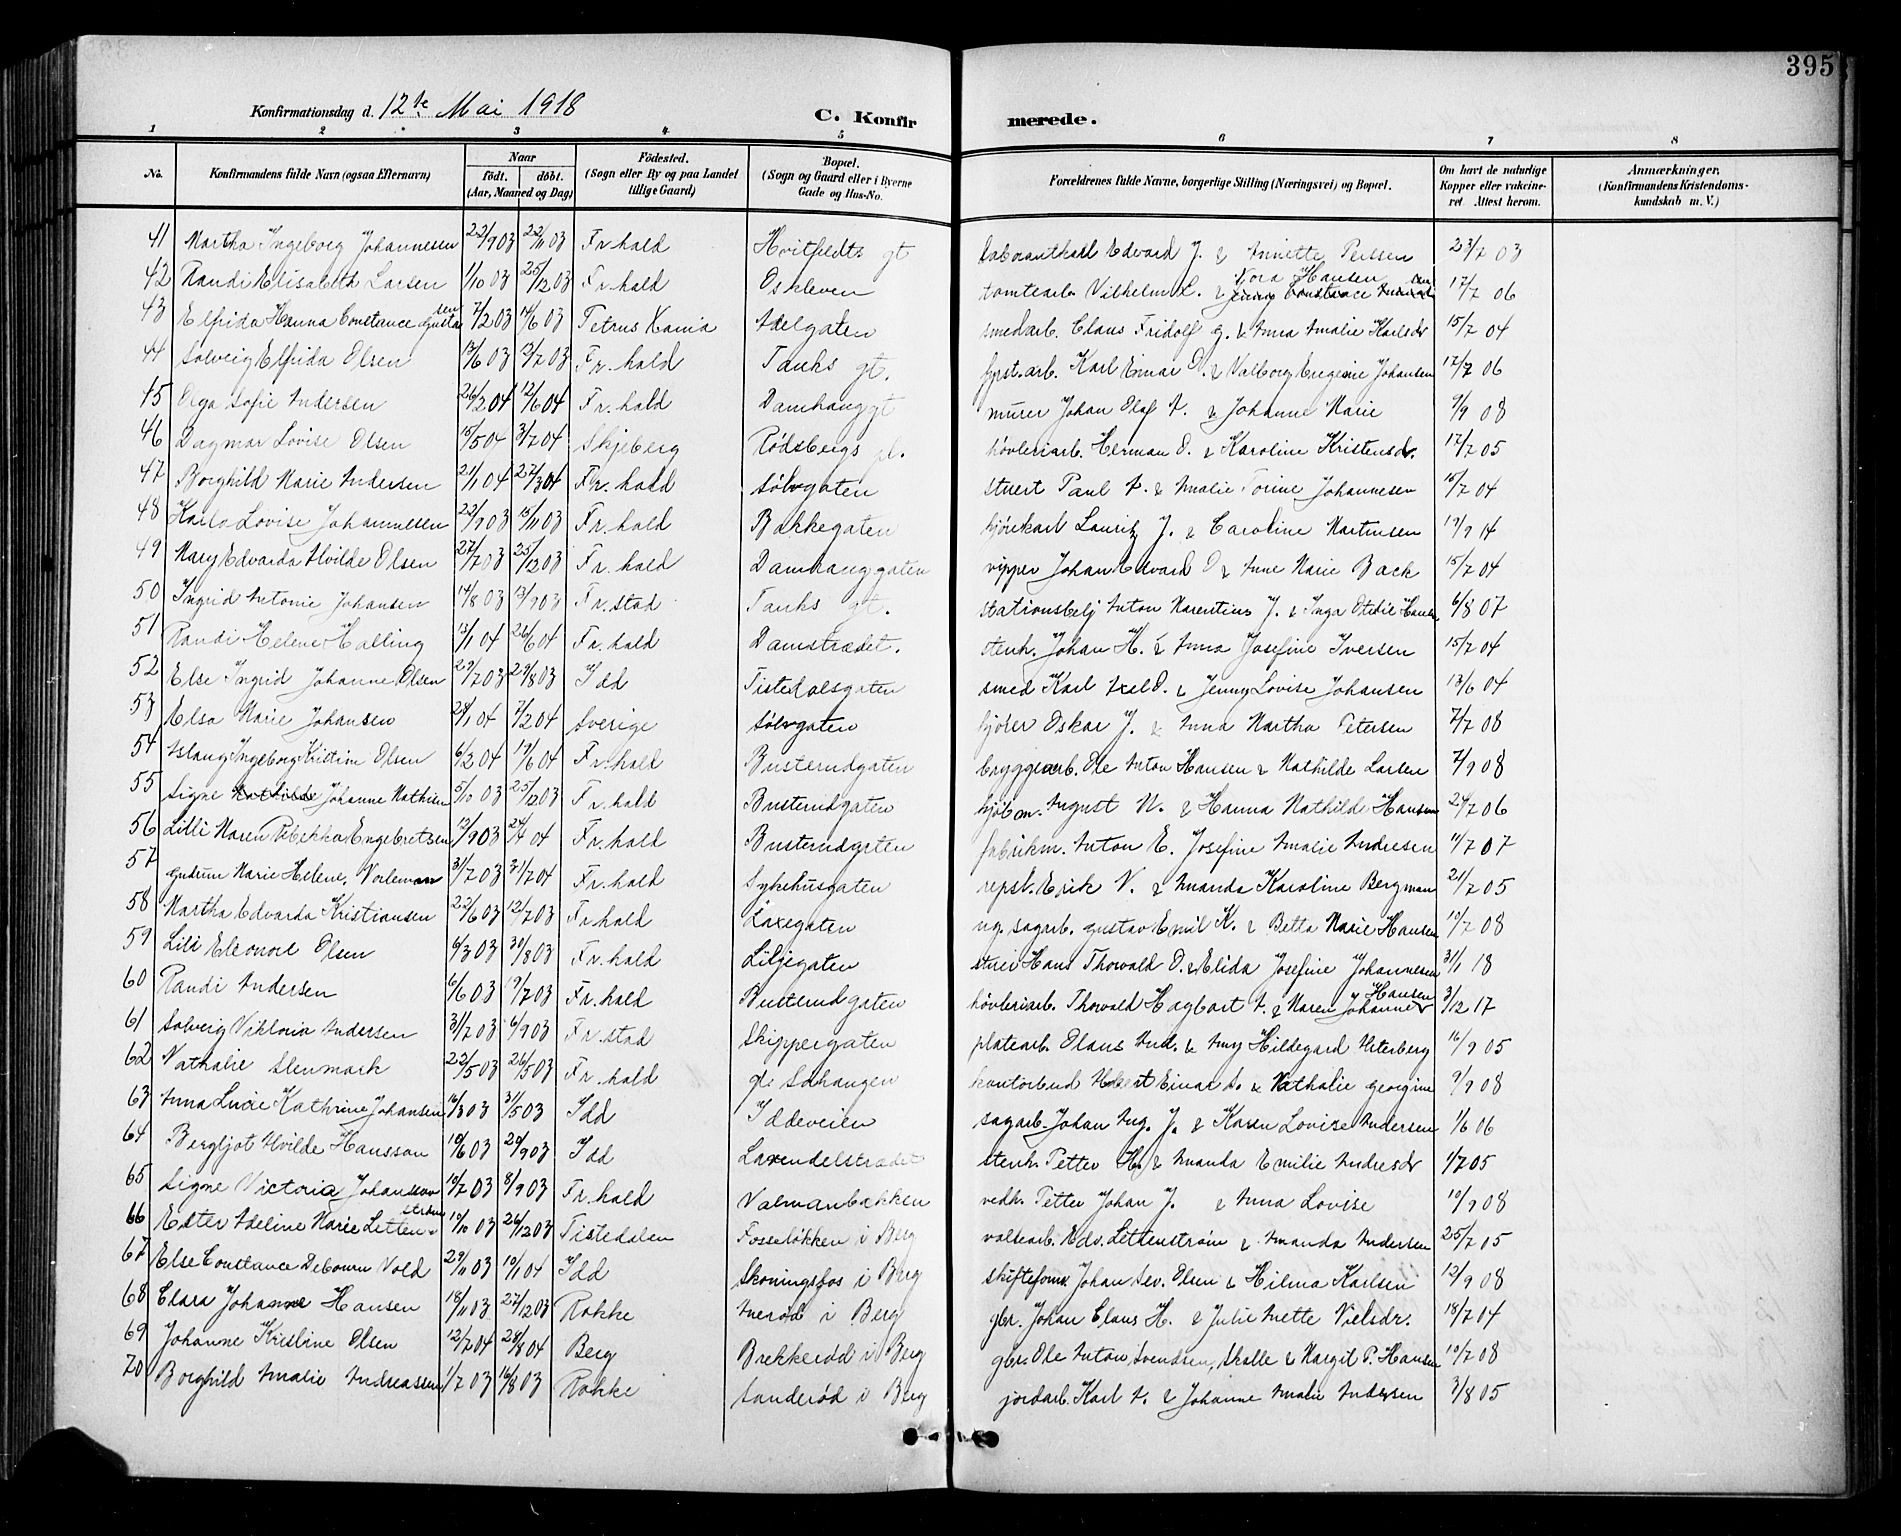 395
Konfirmationsdag d. 12te Mai 1918
C. Konfirmerede.
1 2 3 4 5 6 7 8
No. Konfirmandens fulde Navn (ogsaa Efternavn) Naar födt. döbt. (Aar, Maaned og Dag) Födested. (Sogn eller By og paa Landet tillige Gaard) Bopæl. (Sogn og Gaard eller i Byerne Gade og Hus-No. Forældrenes fulde Navne, borgerlige Stilling (Næringsvei) og Bopæl. Om havt de naturlige Kopper eller vakcineret. Attest herom. Anmærkninger, (Konfirmandens Kristendomskundskab m. V.)
41 Martha Ingeborg Johannesen 22/9 03 22/11 03 Fr.hald Hvitfedts gt Edvard J. & Annette Perssen 23/7 03
42 Randi Elisabeth Larsen 1/10 03 25/12 03 Fr.hald Oskleven tomtearb. Vilhelm L. & Nora Hansen 17/7 06
43 Elfrida Hanna Constance Gustavsen 7/2 03 14/6 03 Petrus Xania Adelgaten smedarb. Claus Fridolf G. & Anna Amalie Karlsdr 15/7 04
44 Solveig Elfrida Olsen 13/6 03 12/7 03 Fr.hald Tanks gt. fyrst.arb. Karl Einar O. & Valborg Eugenie Johansen 17/7 06
45 Olga Sofie Andersen 26/2 04 12/6 04 Fr.hald Damhauggt murer Johan Olaf A. & Johanne Marie 9/9 08
46 Dagmar Lovise Olsen 15/5 04 3/7 04 Skjeberg Rødsbergs pl. høvleriarb. Herman O. & Karoline Kristensdr. 17/7 05
47 Borghild Marie Andersen 21/1 04 27/3 04 Fr.hald Sølvgaten stuert Paul A. & Amalie Torine Johannesen 15/7 04
48 Karla Lovise Johannessen 22/9 03 15/11 03 Fr.hald Bakkegaten kjørekarl Lauritz J. & Caroline Martinsen 19/9 14
49 Mary Edvarda Alvilde Olsen 27/7 03 25/12 03 Fr.hald Damhauggaten vipper Johan Edvard O & Anne Marie Back 15/7 04
50 Ingrid Antonie Johansen 14/8 03 13/9 03 Fr.stad Tanks gt. stationsbetj Anton Narentius J. & Inga Otilie Hansen 6/8 07
51 Randi Helene Halling 13/1 04 26/6 04 Fr.hald Damstrædet. stenh. Johan H. & Anna Josefine Iversen 15/7 04
52 Else Ingrid Johanne Olsen 29/7 03 29/8 03 Idd Tistedalsgaten smed Karl Axel O. & Jenny Lovise Johansen 13/6 04
53 Elsa Marie Johansen 28/1 04 7/2 04 Sverige Sølvgaten kjører Oskar J. & Anna Martha Petersen 7/7 08
54 Aslaug Ingeborg Kristine Olsen 6/2 04 19/6 04 Fr.hald Busterudgaten bryggearb. Ole Anton Hansen & Mathilde Larsen 7/9 08
55 Signe Mathilde Johanne Mathisen 5/10 03 25/12 03 Fr.hald Busterudgaten kjøbm. August M. & Hanna Mathilde Hansen 24/7 06
56 Lilli Maren Rebekka Engebretsen 12/9 03 24/4 04 Fr.hald Busterudgaten fabrikm. Anton E. Josefine Amalie Andresen 11/7 07
57 Gudrun Marie Helene 31/7 03 31/7 04 Fr.hald Sykehusgaten repsl. Erik V. & Amanda Karoline Bergman 21/7 05
58 Martha Edvarda Kristiansen 22/6 03 12/7 03 Fr.hald Laxegaten ug. sagarb. Gustav Emil K. & Betta Marie Hansen 10/7 08
59 Lili Eleonore Olsen 6/3 03 30/8 03 Fr.hald Liljegaten Hans Thorvald O. & Elida Josefine Johannesen 31/1 18
60 Randi Andersen 6/6 03 19/7 03 Fr.hald Busterudgaten høvleriarb. Thorvald Hagbart A. & Maren Johanne Hansen 3/12 17
61 Solveig Viktoria Andersen 31/7 03 6/9 03 Fr.stad Skippergaten platearb. Olaus And. & Amy Hildegard Utterberg 16/9 05
62 Nathalie Stenmark 22/5 03 26/5 03 Fr.hald gl. Sahaugen kontorbud Einar S. & Nathalie Georgine 9/9 08
63 Anna Lucie Kathrine Johansen 16/3 03 31/5 03 Idd Iddeveien sagarb. Johan Aug. J. & Karen Lovise Andersen 1/6 06
64 Bergljot Alvilde Hansson 10/6 03 20/9 03 Idd Lavendelstrædet stenh. Petter H. & Amanda Emilie Andresdr 1/7 05
65 Signe Victoria Johansson 10/7 03 8/9 03 Fr.hald Valmanbakken vedh. Petter Johan J. & Anna Lovise 10/9 08
66 Ester Adeline Marie Lettenstrøm 10/10 03 26/12 03 Tistedalen Fosseløkken i Berg valsearb. Edv. Lettenstrøm & Amanda Andersen 25/7 05
67 Else Constance Vold 29/11 03 10/1 04 Idd Skoningsfos i Berg skifteform. Johan Sev. Olsen & Hilma Karlsen 12/9 08
68 Clara Johanne Hansen 18/11 03 27/12 03 Rokke i Berg gbr. Johan Claus H. & Julie Mette Nielsdr. 18/7 04
69 Johanne Kristine Olsen 12/7 04 28/8 04 Berg Brekkerød i Berg gbr. Ole Anton Svendsen, Skalle & Margit P. Hansen 10/7 08
70 Borghild Amalie Andreassen 1/7 03 16/8 03 Rokke Sanderød i Berg jordarb. Karl A. & Johanne Amalie Andersen 3/8 05